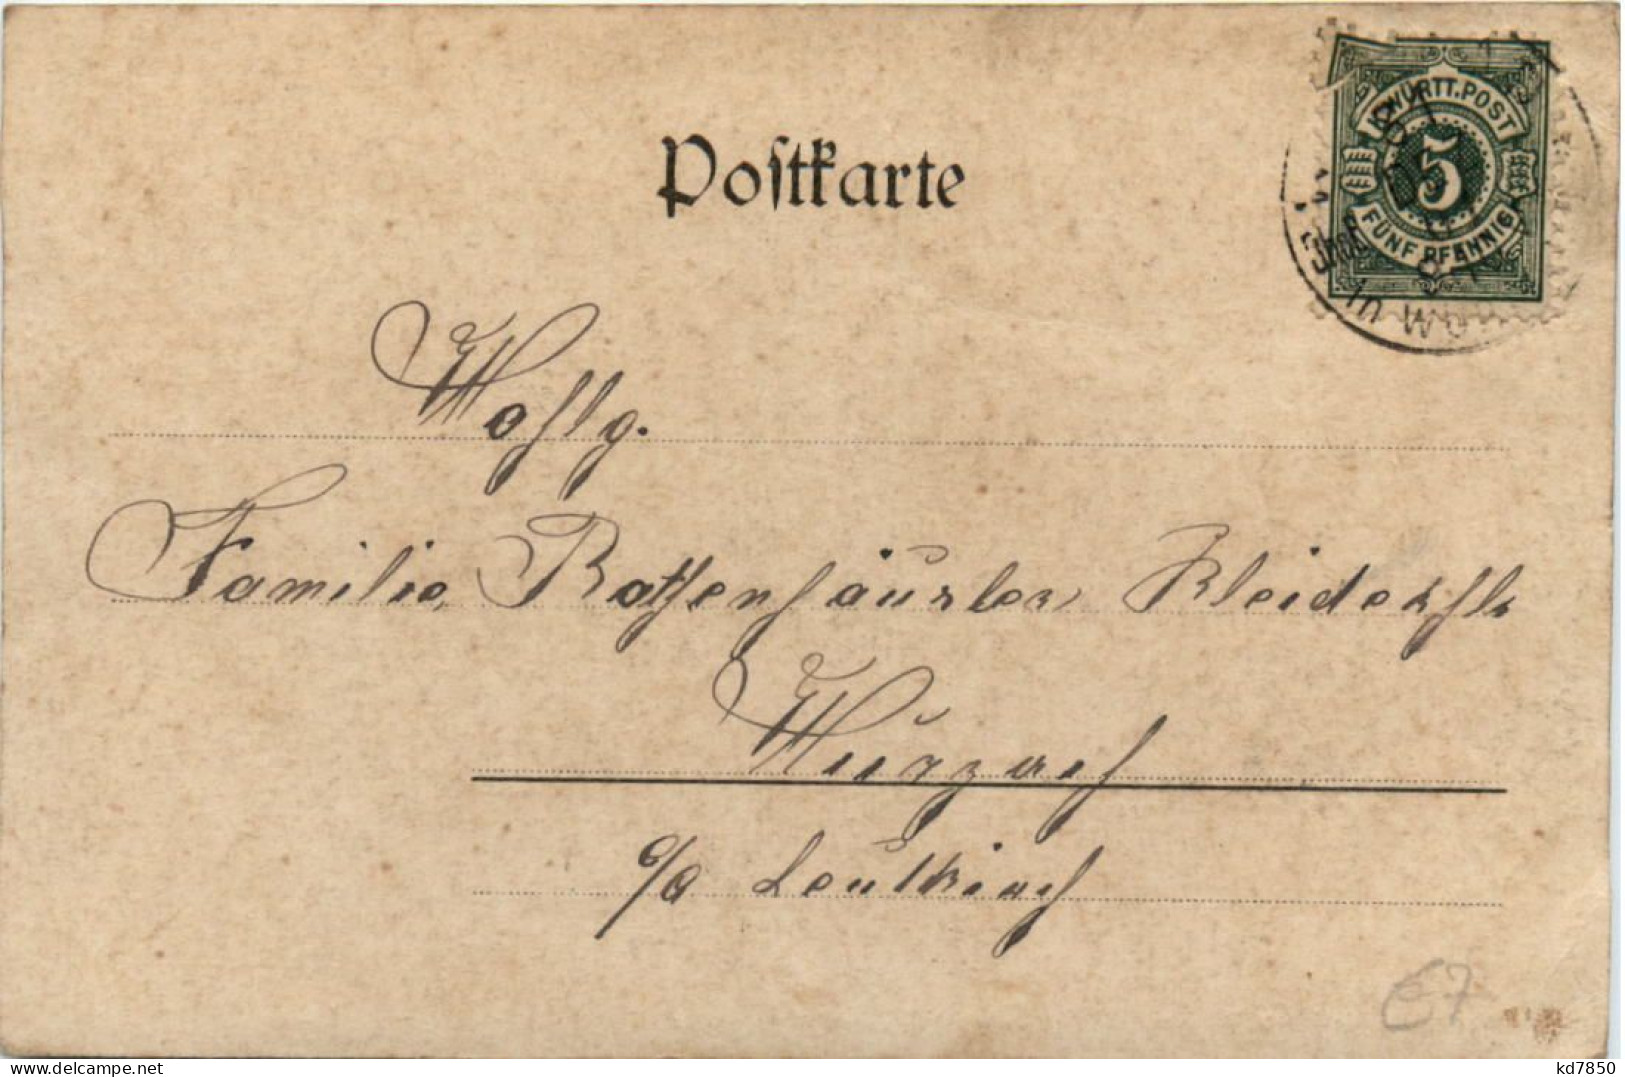 Postkarte
K.WÜRTT.POST
5
FÜNF PFENNIG
Wohlg.
Familie Rothenhäusler Kleiderhlr
Wurzach
o/a Leutkirch
€7
kd7850